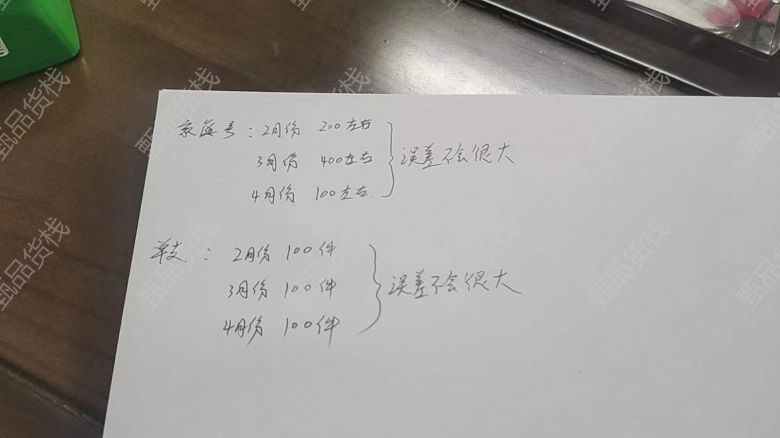 京通号：2月份 200左右
3月份 400左右
4月份 100左右
误差不会很大
单支：2月份 100件
3月份 100件
4月份 100件
误差不会很大
甄品货栈